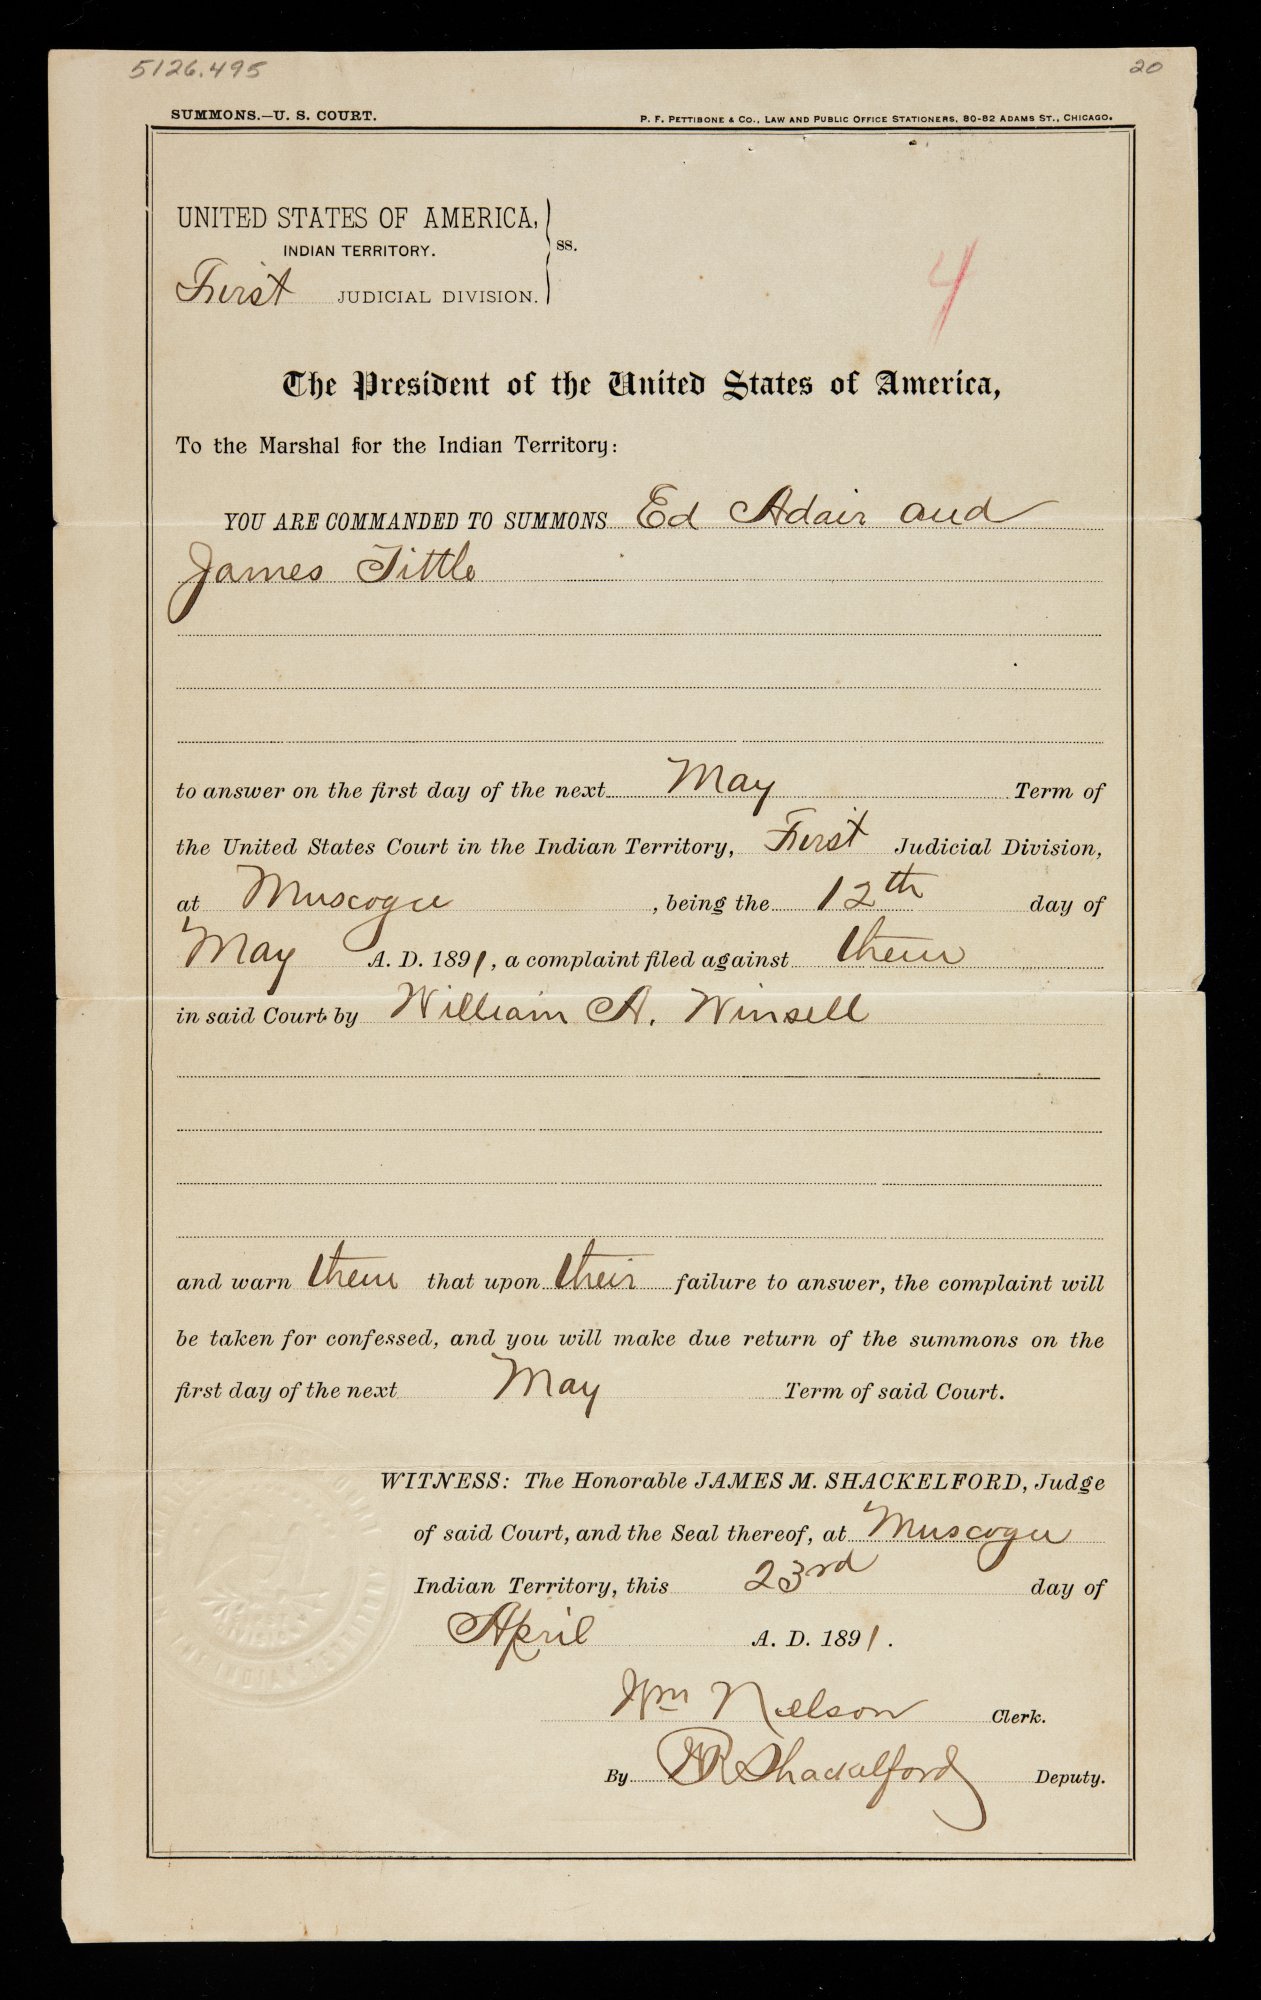 5126.495
20
SUMMONS.—U. S. COURT.
P. F. PETTIBONE & CO., LAW AND PUBLIC OFFICE STATIONERS, 80-82 ADAMS ST., CHICAGO.
UNITED STATES OF AMERICA,
INDIAN TERRITORY.
ss.
First JUDICIAL DIVISION.
4
The President of the United States of America,
To the Marshal for the Indian Territory:
YOU ARE COMMANDED TO SUMMONS Ed Adair and
James Tittle
to answer on the first day of the next May Term of
the United States Court in the Indian Territory, First Judicial Division,
at Muscogee, being the 12th day of
May A. D. 1891, a complaint filed against them
in said Court by William A. Winsell
and warn them that upon their failure to answer, the complaint will
be taken for confessed, and you will make due return of the summons on the
first day of the next May Term of said Court.
WITNESS: The Honorable JAMES M. SHACKELFORD, Judge
of said Court, and the Seal thereof, at Muscogee
Indian Territory, this 23rd day of
April A. D. 1891.
Wm Nelson Clerk.
By Shackelford Deputy.
FIRST
DIVISION
INDIAN TERRITORY